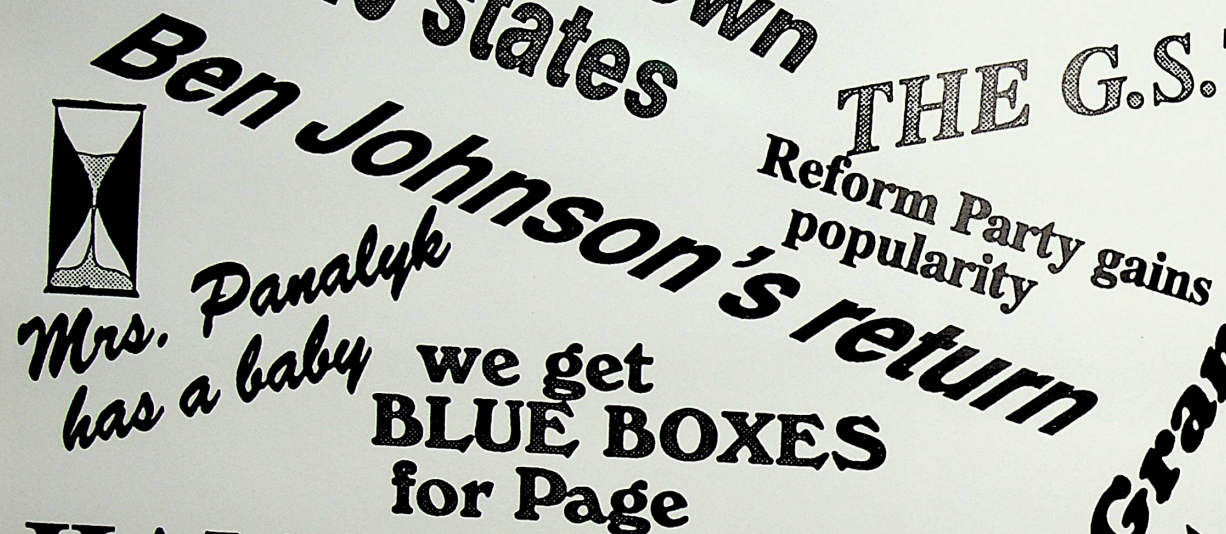 states
Ben Johnson's return
THE G.S.
Reform Party gains
popularity
Mrs. Panalyk
has a baby
we get
BLUE BOXES
for Page